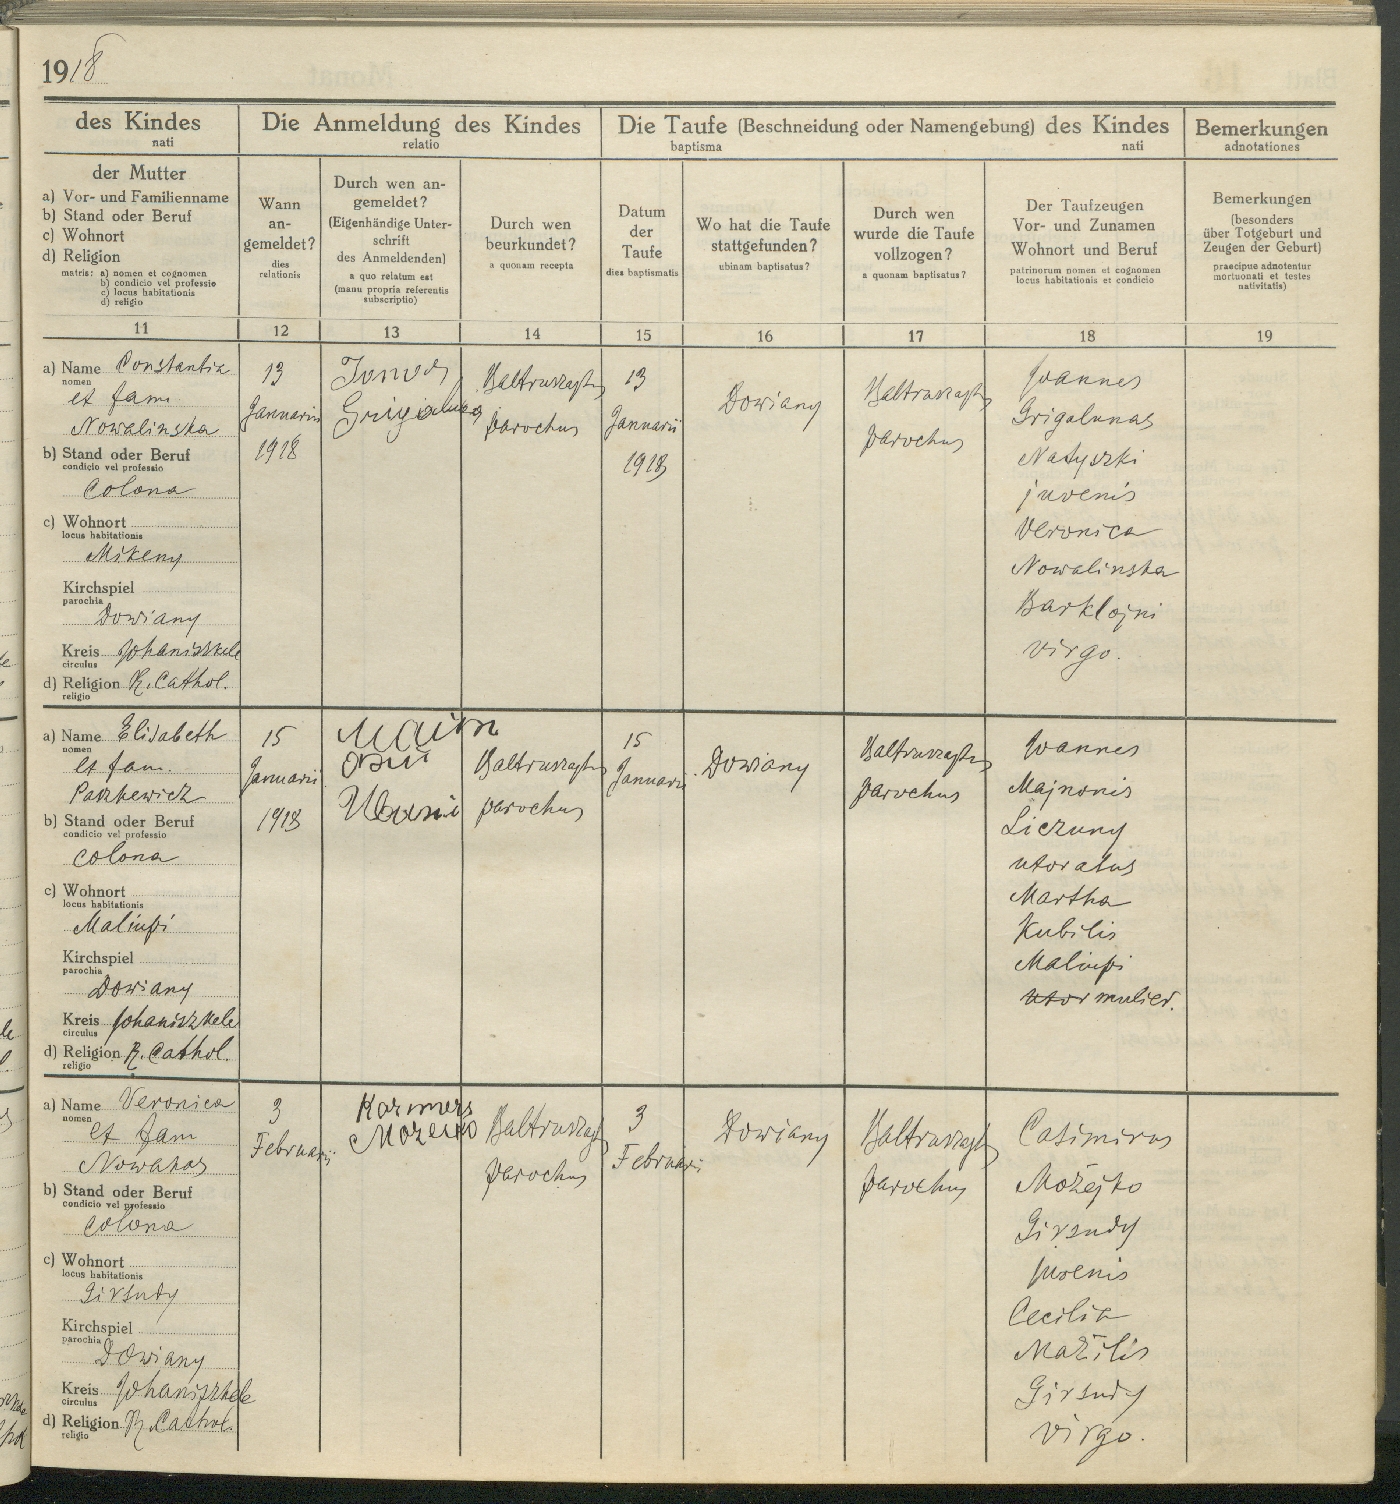 1918
des Kindes
nati
Die Anmeldung des Kindes
relatio
Die Taufe (Beschneidung oder Namengebung) des Kindes
baptisma nati
Bemerkungen
adnotationes
der Mutter
a) Vor- und Familienname
b) Stand oder Beruf
c) Wohnort
d) Religion
matris: a) nomen et cognomen
b) condicio vel professio
c) locus habitationis
d) religio
Wann
an-
gemeldet?
dies
relationis
Durch wen an-
gemeldet?
(Eigenhändige Unter-
schrift
des Anmeldenden)
a quo relatum est
(manu propria referentis
subscriptio)
Durch wen
beurkundet?
a quonam recepta
Datum
der
Taufe
dies baptismatis
Wo hat die Taufe
stattgefunden?
ubinam baptisatus?
Durch wen
wurde die Taufe
vollzogen?
a quonam baptisatus?
Der Taufzeugen
Vor- und Zunamen
Wohnort und Beruf
patrinorum nomen et cognomen
locus habitationis et condicio
Bemerkungen
(besonders
über Totgeburt und
Zeugen der Geburt)
praecipue adnotentur
mortuonati et testes
nativitatis)
11 12 13 14 15 16 17 18 19
a) Name Constantia
nomen
et fam.
Nowalinska
b) Stand oder Beruf
condicio vel professio
Colona
c) Wohnort
locus habitationis
Mikeny
Kirchspiel
parochia
Dowiany
Kreis Johaniszkele
circulus
d) Religion R. Cathol.
religio
13
Januarii
1918
Baltruszajtys
parochus
13
Januarii
1918
Dowiany
Baltruszajtys
parochus
Joannes
Grigalunas
Natyszki
juvenis
Veronica
Nowalinska
Barklojni
virgo.
a) Name Elisabeth
nomen
et fam.
Paszkewicz
b) Stand oder Beruf
condicio vel professio
Colona
c) Wohnort
locus habitationis
Maliupi
Kirchspiel
parochia
Dowiany
Kreis Johaniszkele
circulus
d) Religion R. Cathol.
religio
15
Januarii
1918
Baltruszajtys
parochus
15
Januarii
Dowiany
Baltruszajtys
parochus
Joannes
Majnonis
Liczuny
uxoratus
Martha
Kubilis
Maliupi
mulier.
a) Name Veronica
nomen
et fam
Nowakas
b) Stand oder Beruf
condicio vel professio
Colona
c) Wohnort
locus habitationis
Girsudy
Kirchspiel
parochia
Dowiany
Kreis Johaniszkele
circulus
d) Religion R. Cathol.
religio
3
Februarii
Kazimers
Mozeiko
Baltruszajtys
parochus
3
Februarii
Dowiany
Baltruszajtys
parochus
Casimirus
Możejko
Girsudy
juvenis
Cecilia
Mažilis
Girsudy
virgo.